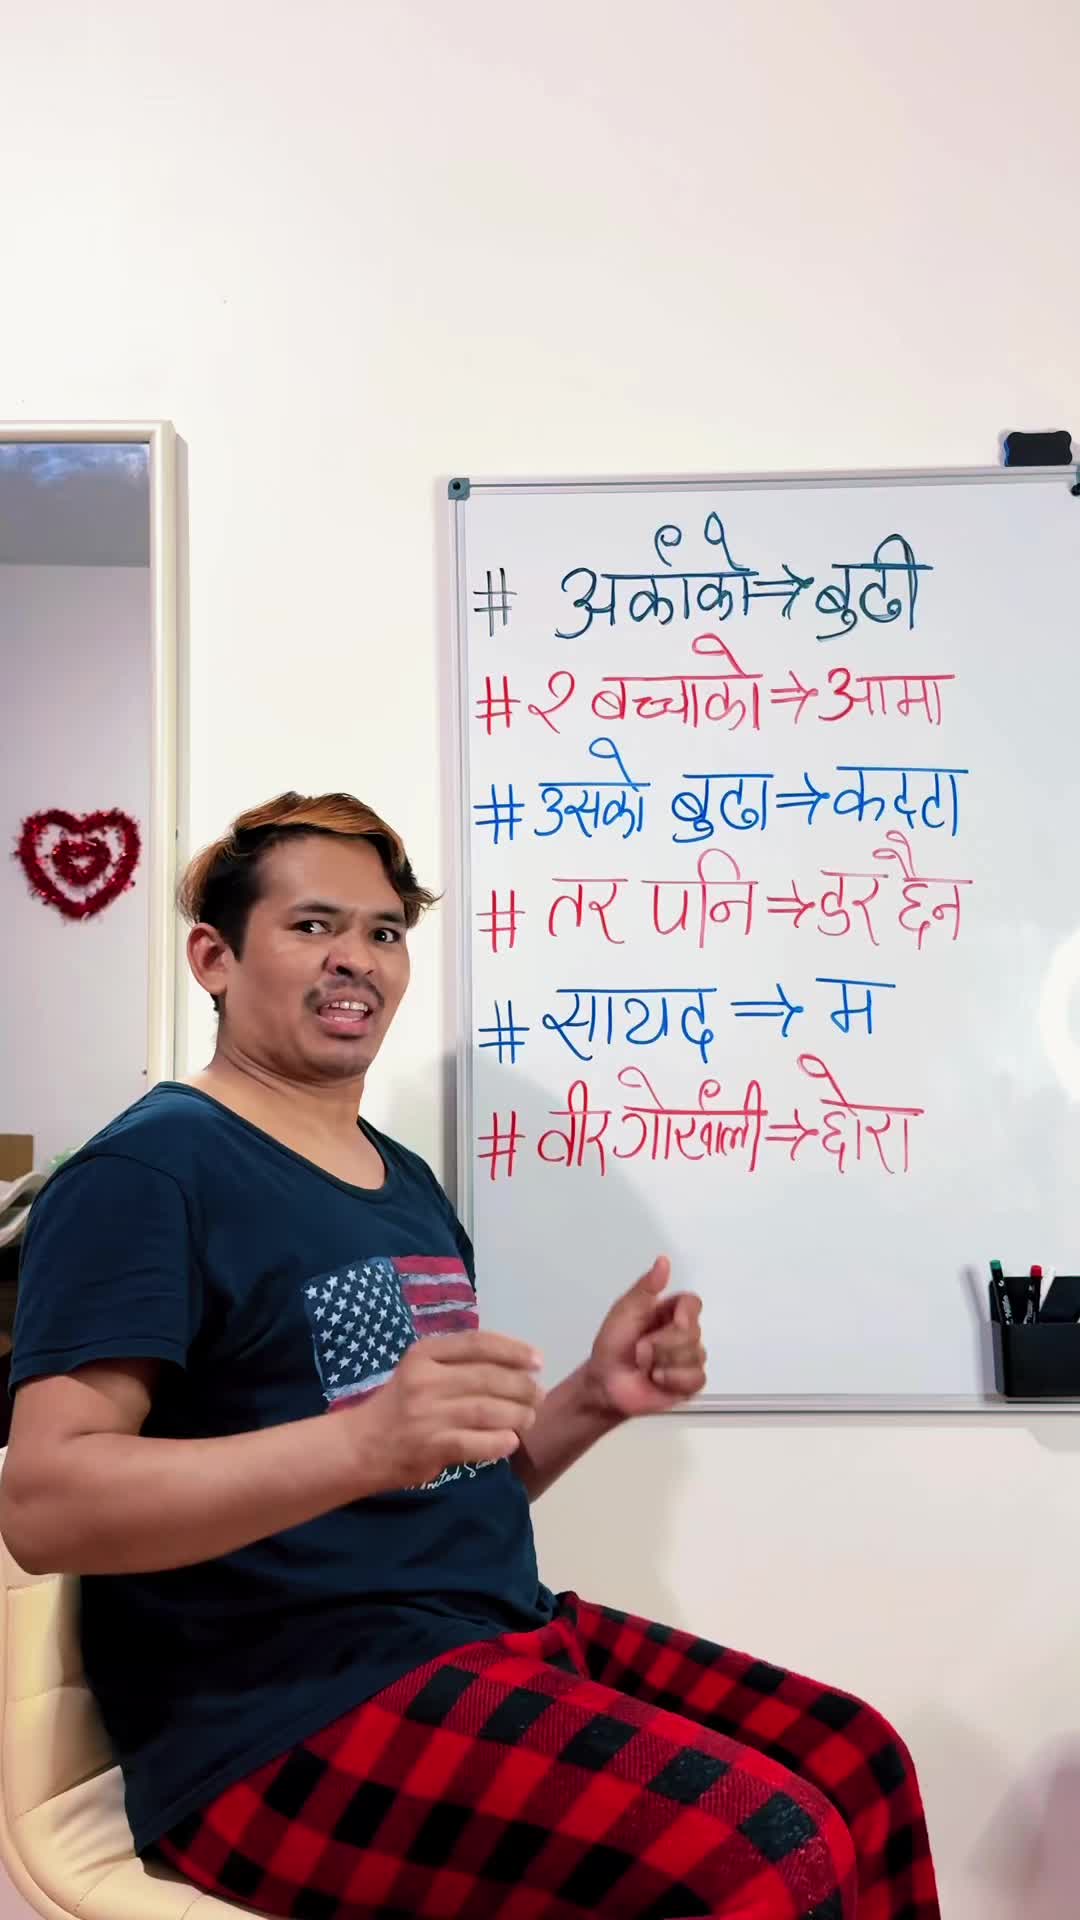 # अर्काको⇒बुढी
# २ बच्चाको⇒आमा
# उसको बुढा⇒कट्टा
# तर पनि⇒डर छैन
# सायद ⇒ म
# वीर गोर्खाली⇒छोरा
United States